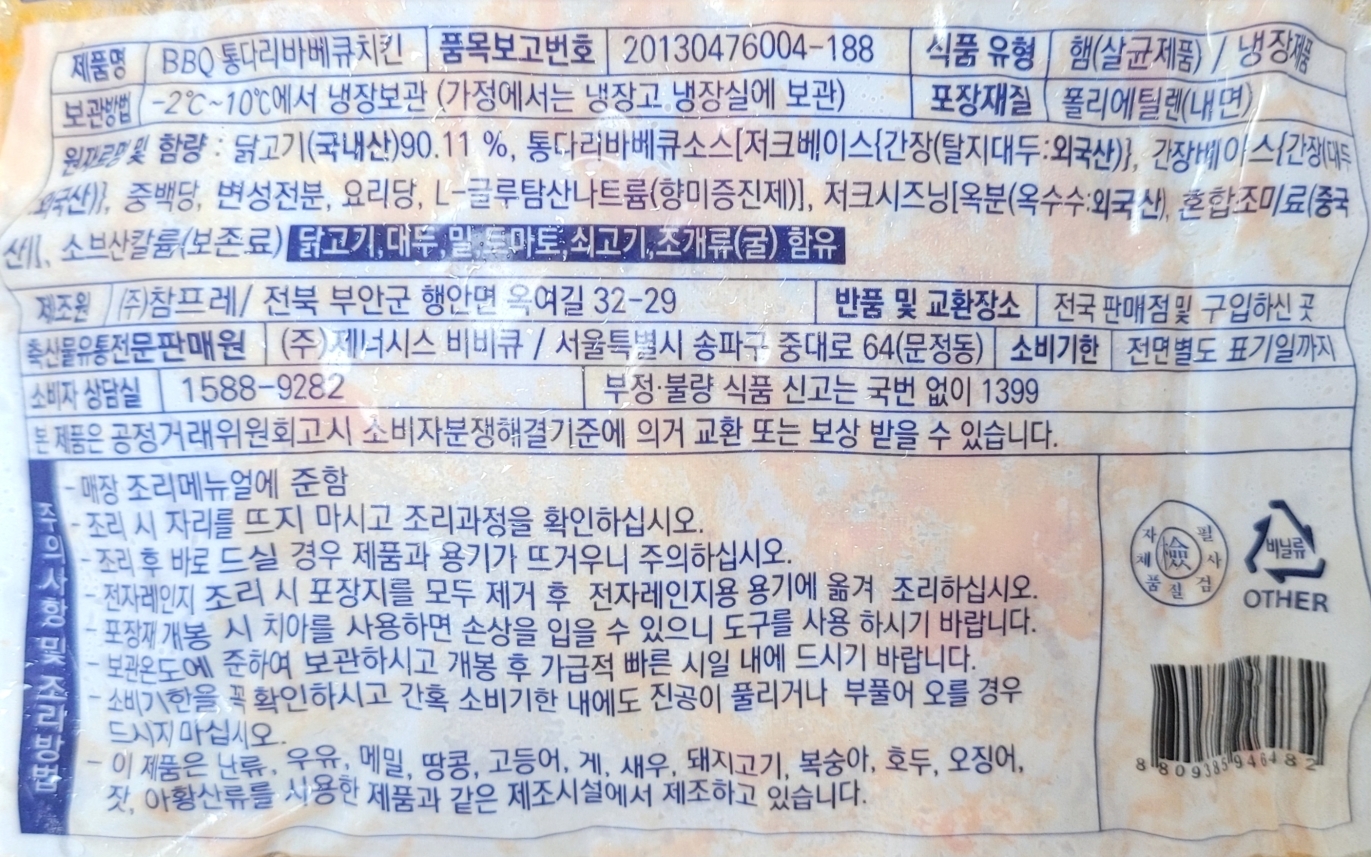 제품명 BBQ 통다리바베큐치킨 품목보고번호 20130476004-188 식품 유형 햄(살균제품) / 냉장제품
보관방법 -2℃~10℃에서 냉장보관 (가정에서는 냉장고 냉장실에 보관) 포장재질 폴리에틸렌(내면)
원재료명 및 함량 : 닭고기(국내산)90.11 %, 통다리바베큐소스[저크베이스{간장(탈지대두:외국산)}, 간장베이스{간장(대두:
외국산)}, 중백당, 변성전분, 요리당, L-글루탐산나트륨(향미증진제)], 저크시즈닝[옥분(옥수수:외국산), 혼합조미료(중국
산)], 소브산칼륨(보존료) 닭고기,대두,밀,토마토,쇠고기,조개류(굴) 함유
제조원 (주)참프레/ 전북 부안군 행안면 옥여길 32-29 반품 및 교환장소 전국 판매점 및 구입하신 곳
축산물유통전문판매원 (주)제너시스 비비큐 / 서울특별시 송파구 중대로 64(문정동) 소비기한 전면별도 표기일까지
소비자 상담실 1588-9282 부정·불량 식품 신고는 국번 없이 1399
본 제품은 공정거래위원회고시 소비자분쟁해결기준에 의거 교환 또는 보상 받을 수 있습니다.
주의사항 및 조리방법
- 매장 조리메뉴얼에 준함
- 조리 시 자리를 뜨지 마시고 조리과정을 확인하십시오.
- 조리 후 바로 드실 경우 제품과 용기가 뜨거우니 주의하십시오.
- 전자레인지 조리 시 포장지를 모두 제거 후 전자레인지용 용기에 옮겨 조리하십시오.
- 포장재 개봉 시 치아를 사용하면 손상을 입을 수 있으니 도구를 사용 하시기 바랍니다.
- 보관온도에 준하여 보관하시고 개봉 후 가급적 빠른 시일 내에 드시기 바랍니다.
- 소비기한을 꼭 확인하시고 간혹 소비기한 내에도 진공이 풀리거나 부풀어 오를 경우
드시지 마십시오.
- 이 제품은 난류, 우유, 메밀, 땅콩, 고등어, 게, 새우, 돼지고기, 복숭아, 호두, 오징어,
잣, 아황산류를 사용한 제품과 같은 제조시설에서 제조하고 있습니다.
자체품질검사필
비닐류
OTHER
8 809385 946482